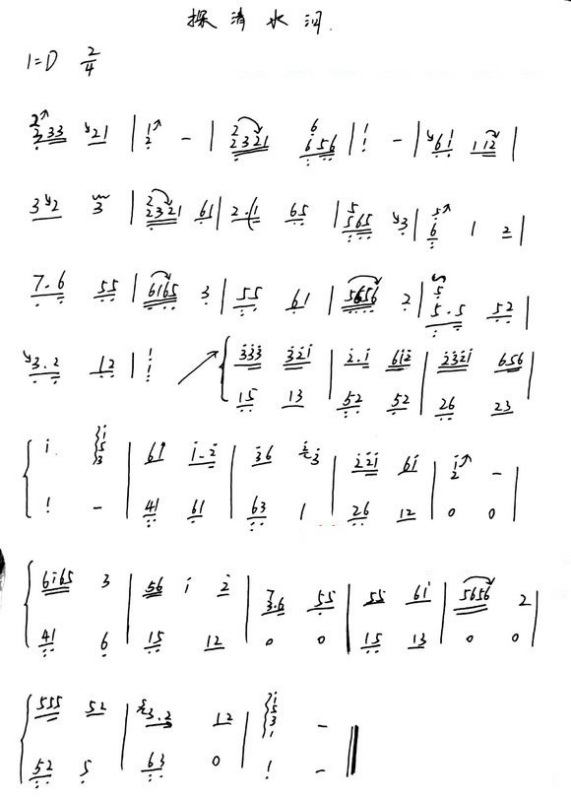 探清水河
1=D 2/4
2 233 21 | 1 2 - | 2 2321 6 656 | 1 1 - | 61 112 |
3 2 3 | 2 2321 61 | 2.1 65 | 5 565 3 | 5 6 1 2 |
7.6 55 | 6165 3 | 55 61 | 5656 2 | 5 5.5 52 |
3.2 12 | 1 1 333 321 | 2.1 612 | 2321 656 |
15 13 | 52 52 | 26 23 |
1 1 5 3 | 61 1-2 | 36 2 3 | 221 61 | 1 2 - |
1 - | 41 61 | 63 1 | 26 12 | 0 0 |
6165 3 | 56 1 2 | 7 3.6 55 | 55 61 | 5656 2 |
41 6 | 15 12 | 0 0 | 15 13 | 0 0 |
555 52 | 3.2 12 | 1 5 3 1 - ||
52 5 | 63 0 | 1 - ||